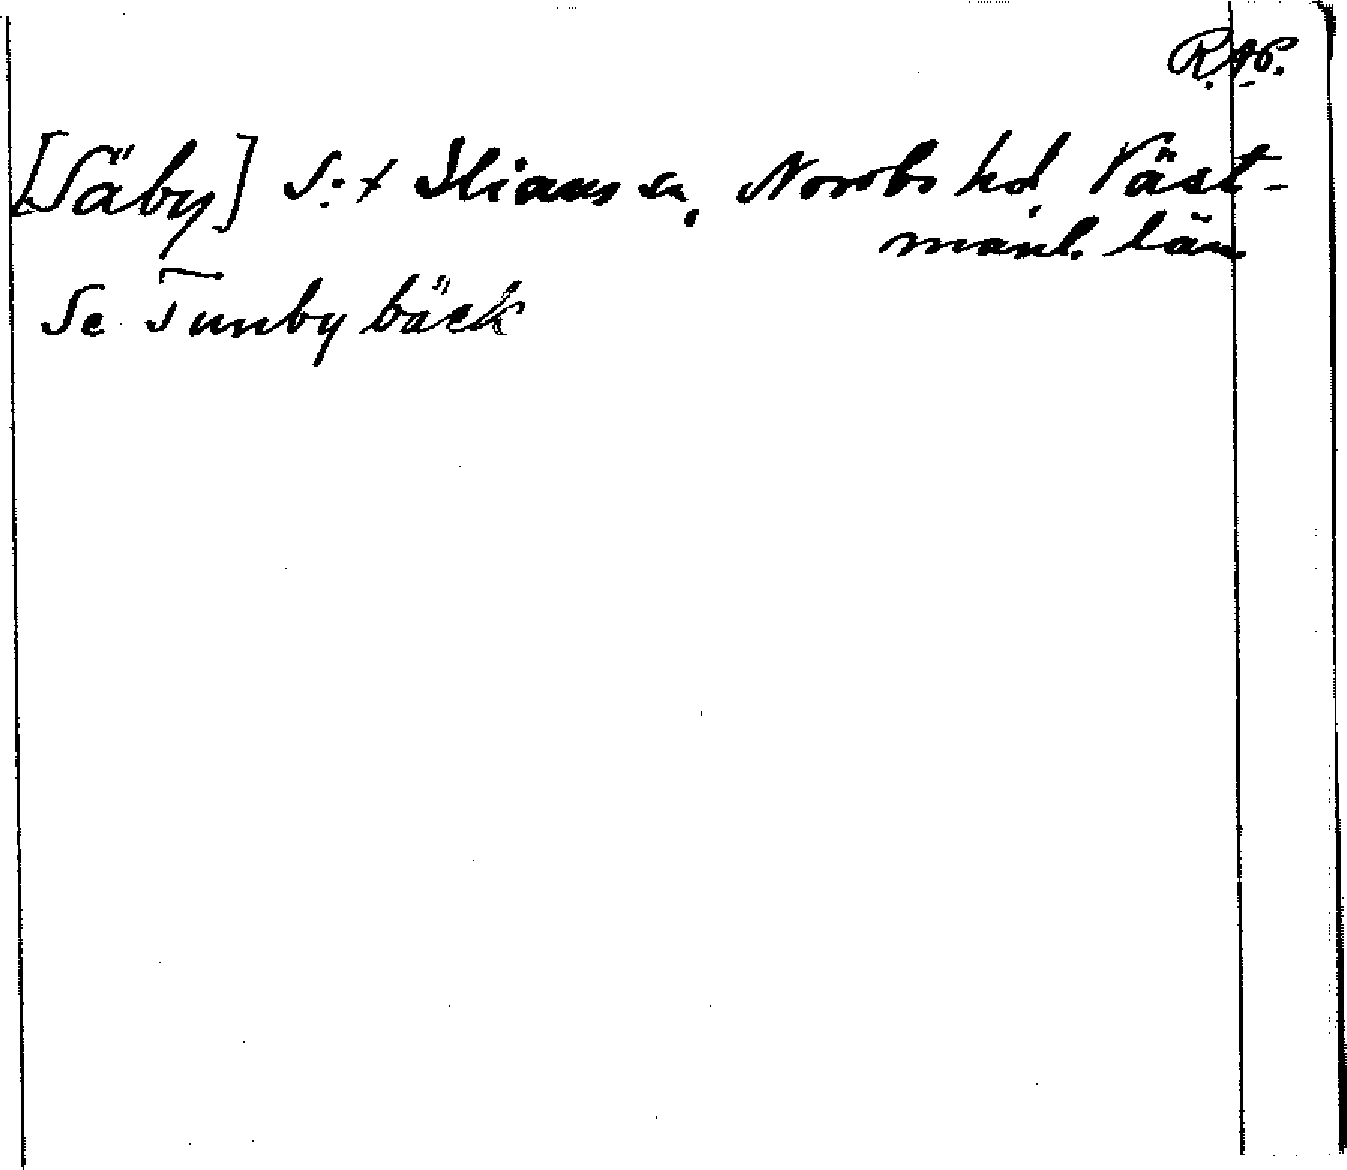 [Säby] S:t Ilians sn, Norrbo hd, Väst-
manl. län
Se Tunbybäck